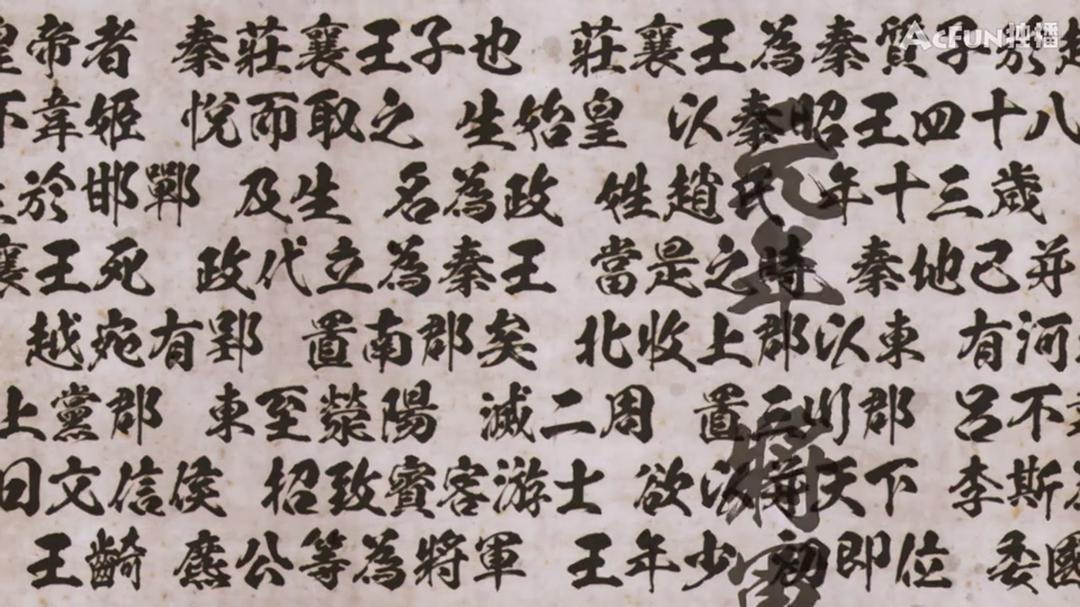 帝者 秦莊襄王子也 莊襄王為秦質子於
韋姬 悅而取之 生始皇 以秦昭王四十八
於邯鄲 及生 名為政 姓趙氏 年十三歲
襄王死 政代立為秦王 當是之時 秦地已并
越宛有郢 置南郡矣 北收上郡以東 有河
上黨郡 東至滎陽 滅二周 置三川郡 呂不
曰文信侯 招致賓客游士 欲以并天下 李斯
王齮 麃公等為將軍 王年少 初即位 委國
元年 將軍
AcFun独播